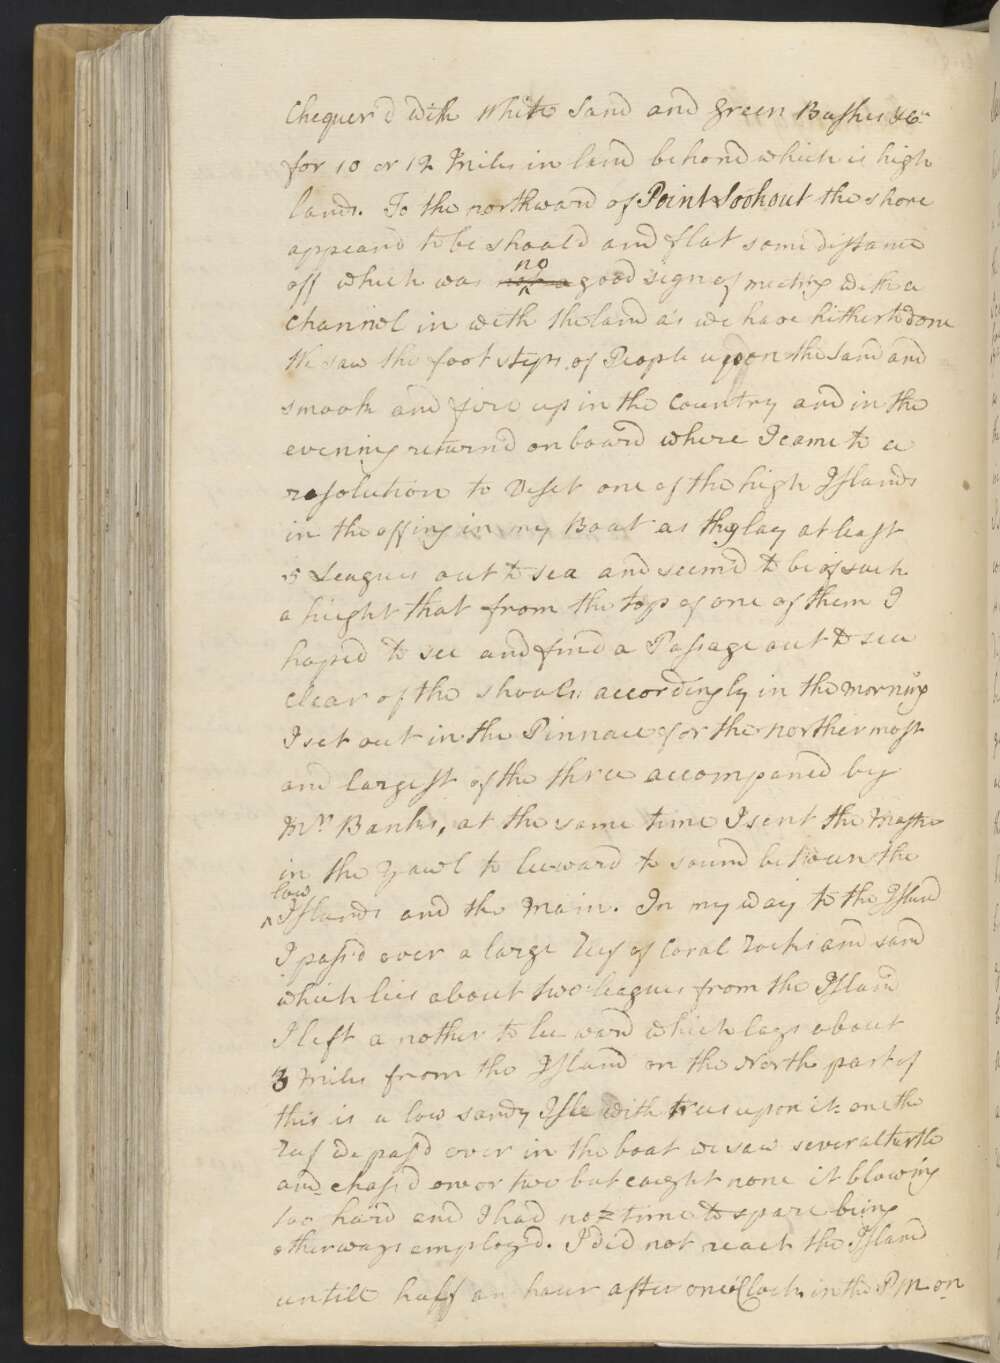 Chequer'd with white Sand and green Bushes &Ca
for 10 or 12 Miles in land behond which is high
lands. To the northward of Point Lookout the shore
appear'd to be shoal'd and flat some distance
off which was no good sign of meeting with a
channel in with the land as we have hitherto done
We saw the foot steps of People upon the Sand and
smook and fire up in the Country and in the
evening return'd on board where I came to a
resolution to Viset one of the high Islands
in the offing in my Boat as they lay at least
5 Leagues out to sea and seem'd to be of such
a hieght that from the top of one of them I
hoped to see and find a Passage out to sea
clear of the shoals: accordingly in the morning
I set out in the Pinnace for the northermost
and largest of the three accompaned by
Mr. Banks, at the same time I sent the Master
in the Yawl to leeward to sound between the
low
Islands and the Main. In my way to the Island
I pass'd over a large reef of Coral rocks and sand
which lies about two leagues from the Island
I left a nother to lee ward which lays about
3 Miles from the Island on the North part of
this is a low sandy Isle with trees upon it: one the
reef we pass'd over in the boat we saw several turtle
and chased one or two but caught none it blowing
too hard and I had no time to spare being
otherways employ'd. I did not reach the Island
untill half an hour after one oClock in the PM on